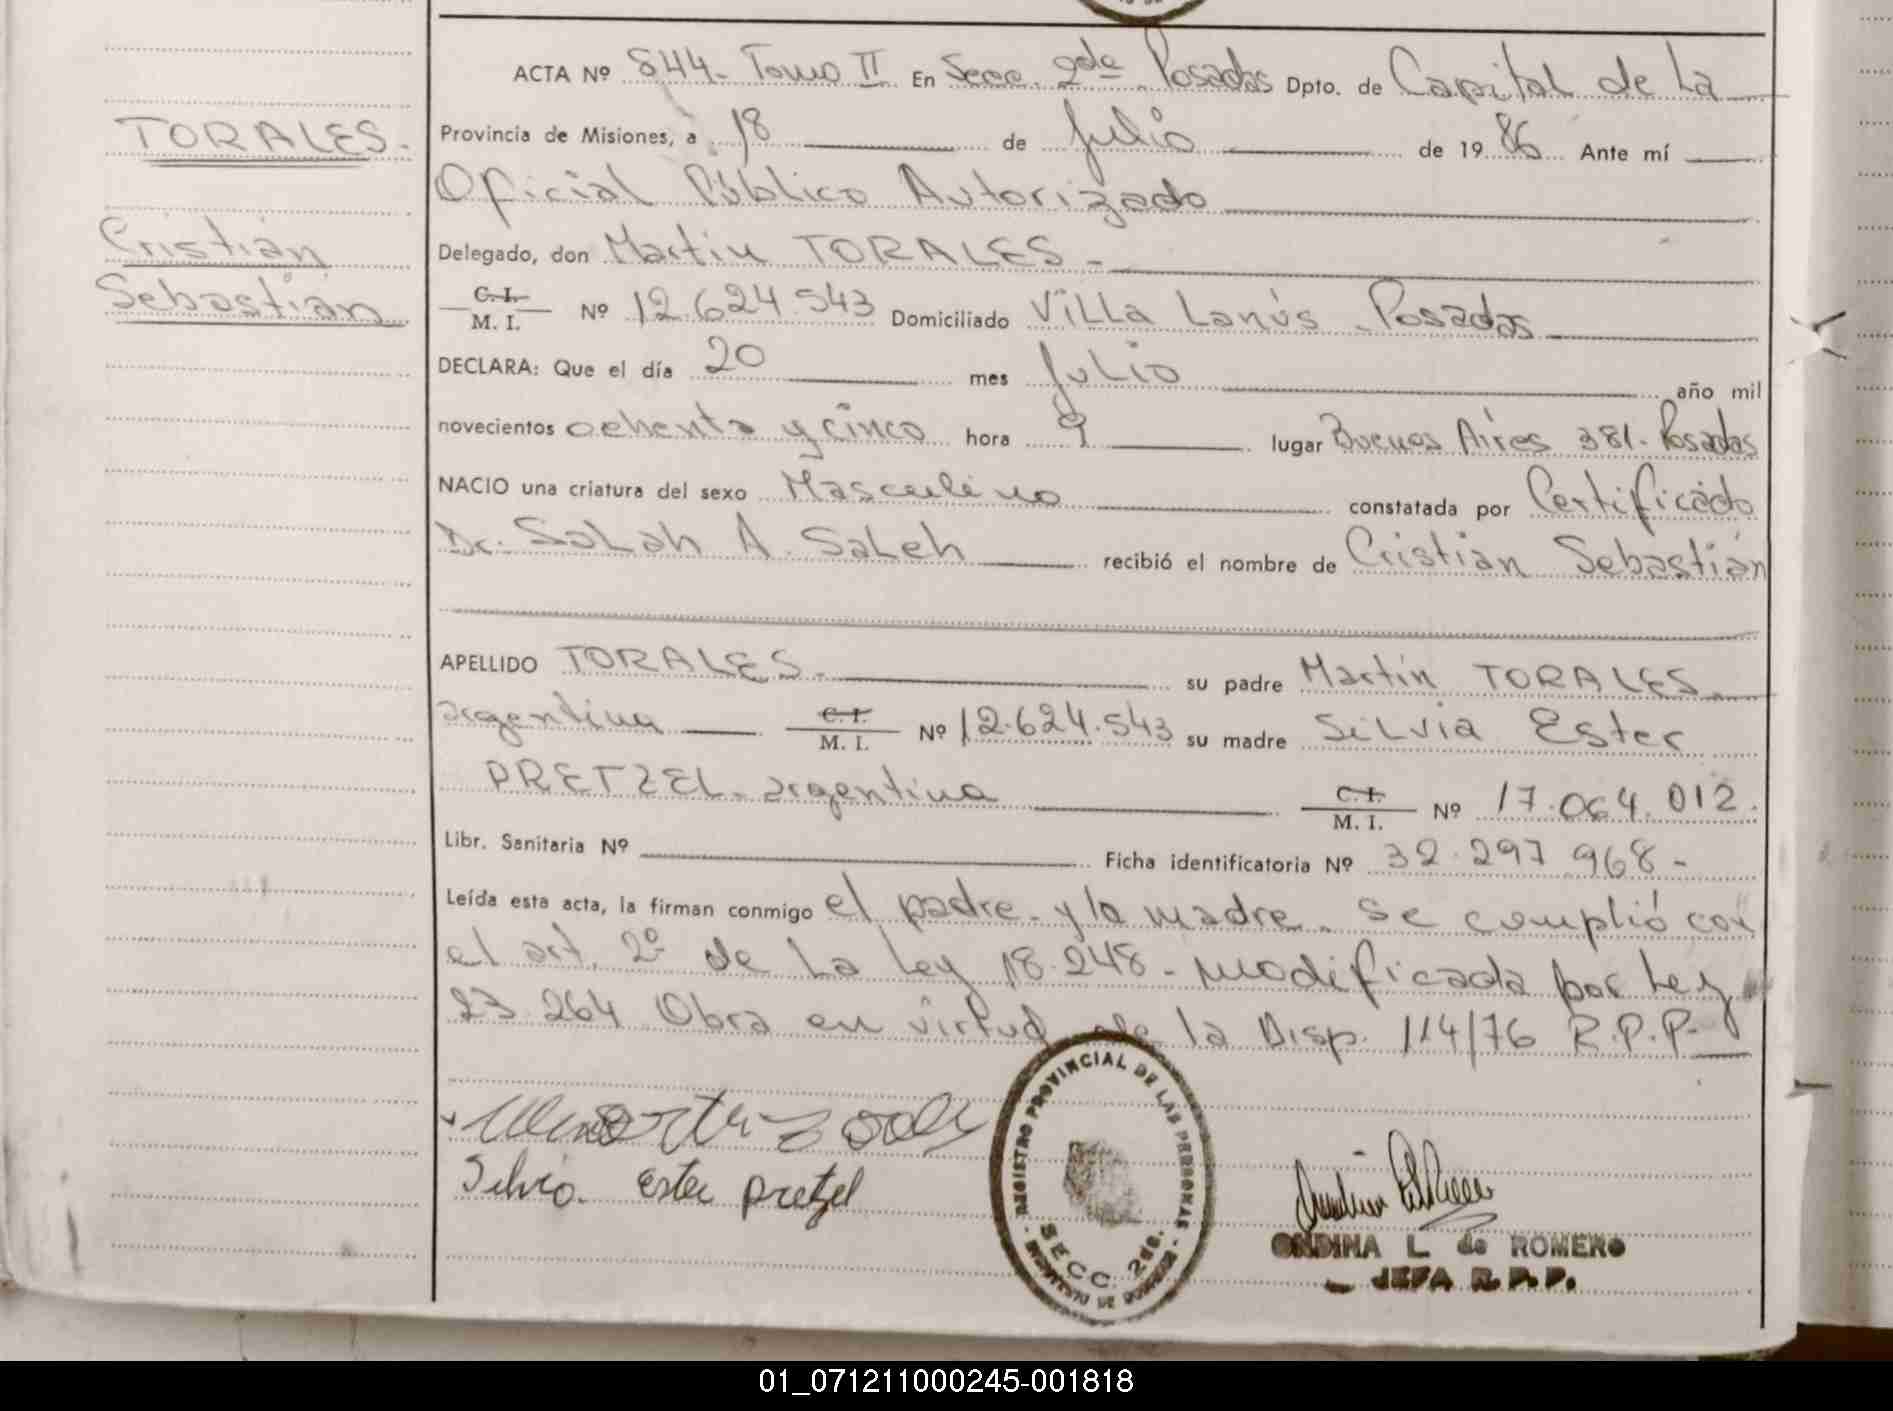 ACTA Nº 844- Tomo II En Secc. 2da Posadas Dpto. de Capital de La
Provincia de Misiones, a 18 de Julio de 1986 Ante mí
Oficial Público Autorizado
Delegado, don Martin TORALES -
C.I. M. I. Nº 12.624.543 Domiciliado Villa Lanús - Posadas
DECLARA: Que el día 20 mes Julio año mil
novecientos ochenta y cinco hora 9 lugar Buenos Aires 381- Posadas
NACIO una criatura del sexo Masculino constatada por Certificado
Dr. Salah A. Saleh recibió el nombre de Cristian Sebastián
APELLIDO TORALES- su padre Martín TORALES
argentina C.I. M. I. Nº 12.624.543 su madre Silvia Ester
PRETZEL- argentina C.I. M. I. Nº 17.064.012.
Libr. Sanitaria Nº Ficha identificatoria Nº 32.297.968-
Leída esta acta, la firman conmigo el padre- y la madre- Se cumplió con
el art. 2º de la Ley 18.248- modificada por Ley
23.264 Obra en virtud de la Disp. 114/76 R.P.P-
TORALES.
Cristián
Sebastián
Silvia. ester pretzel
REGISTRO PROVINCIAL DE LAS PERSONAS
SECC. 2da.
ONDINA L de ROMERO
JEFA R.P.P.
01_071211000245-001818